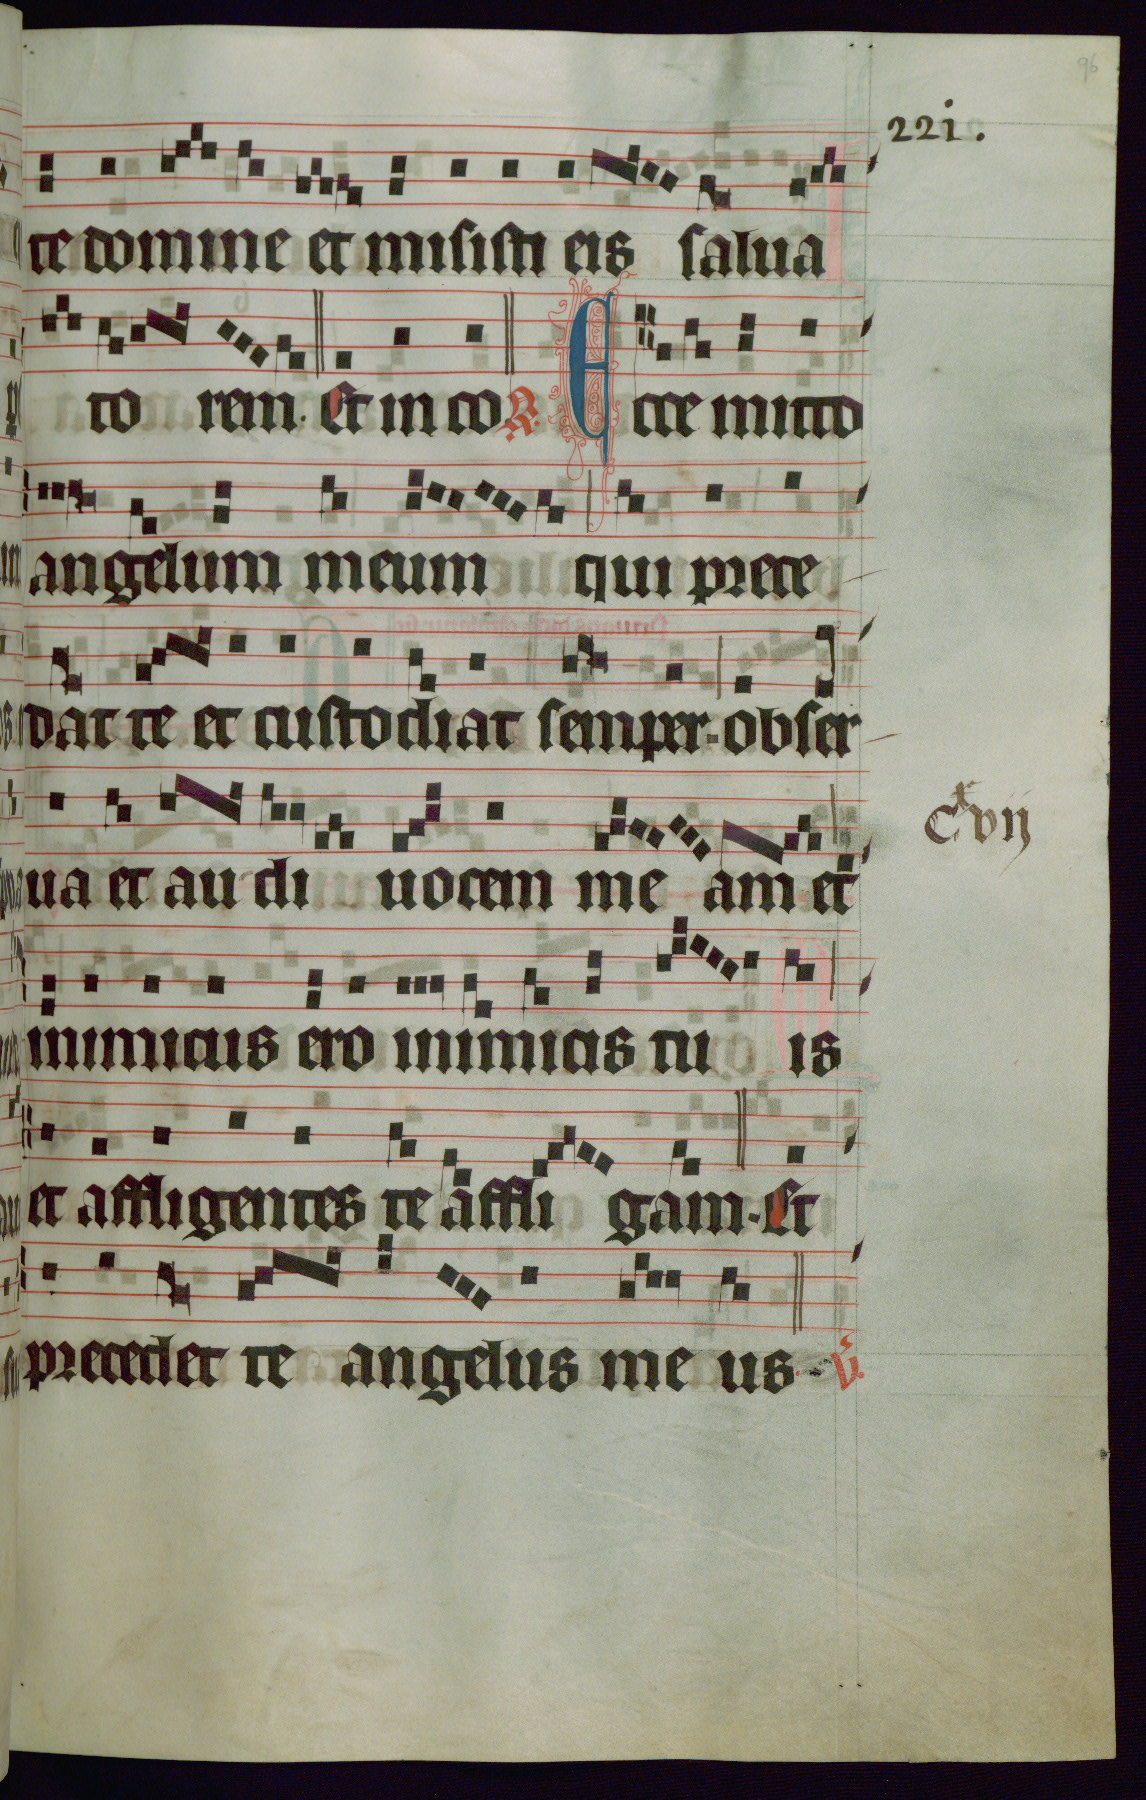 96
221.
te domine et misisti eis salua
to rem. Et in co R. Ecce mitto
angelum meum qui prece
dat te et custodiat semper. obser
ua et au di uocem me am et
Cxvij
inimicus ero inimicis tu is
et affligentes te affli gam. Et
precedet te angelus me us. V.